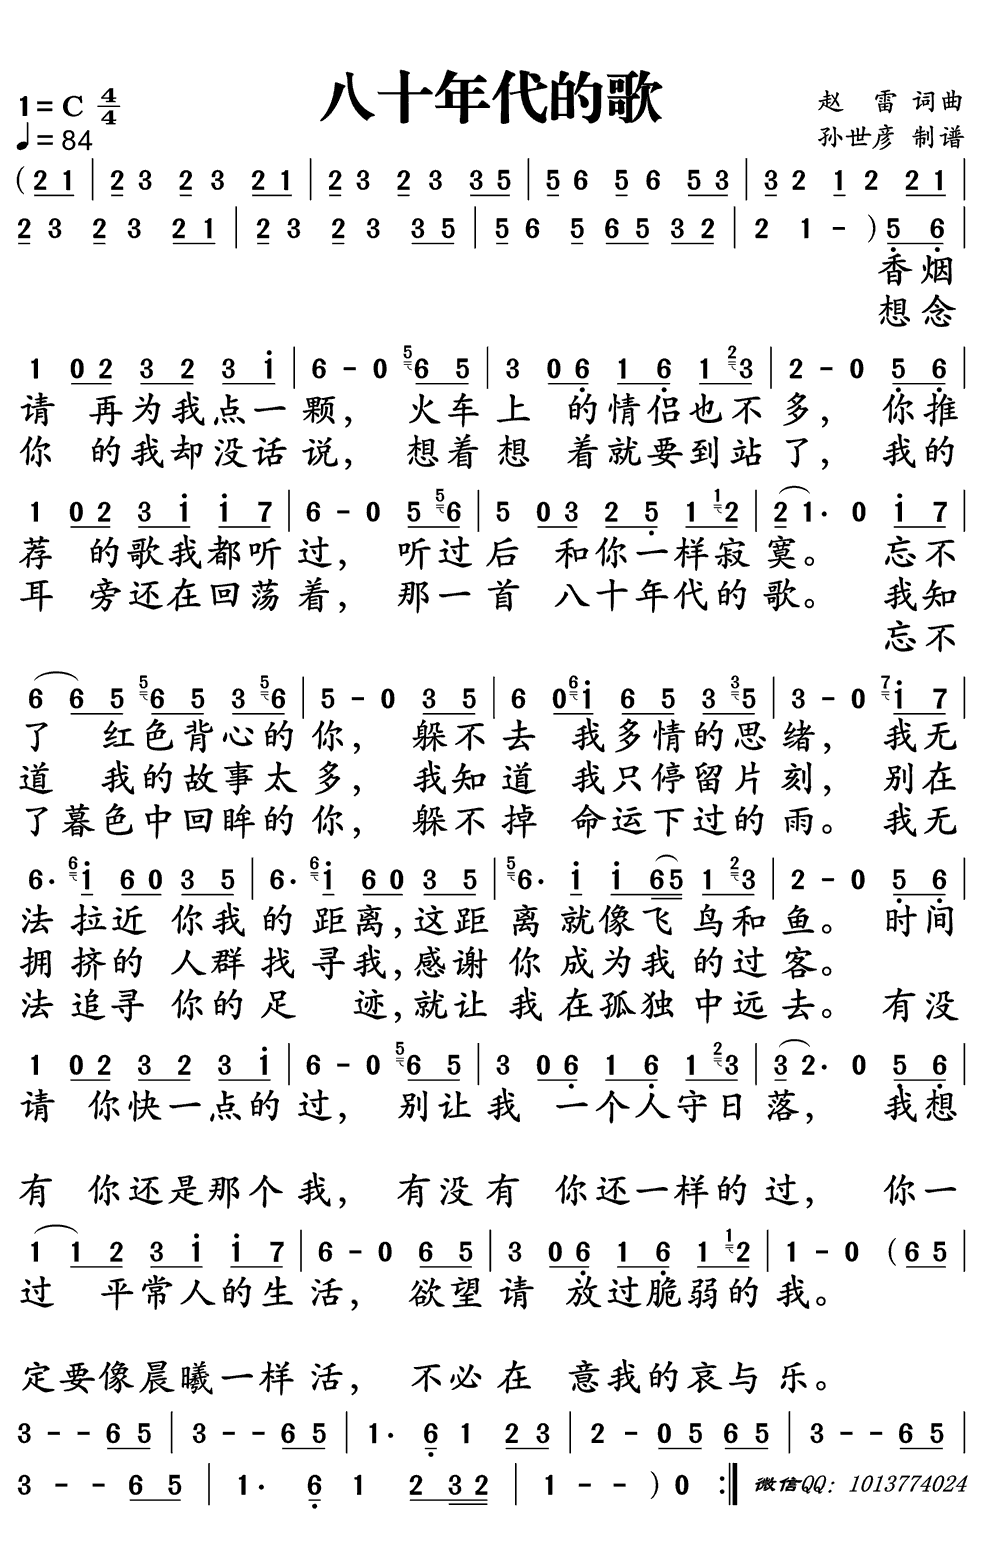 八十年代的歌
1=C 4/4
♩=84
赵 雷 词曲
孙世彦 制谱
(2 1 | 2 3 2 3 2 1 | 2 3 2 3 3 5 | 5 6 5 6 5 3 | 3 2 1 2 2 1 |
2 3 2 3 2 1 | 2 3 2 3 3 5 | 5 6 5 6 5 3 2 | 2 1 - ) 5 6 |
香烟
想念
1 0 2 3 2 3 i | 6 - 0 5 6 5 | 3 0 6 1 6 1 2 3 | 2 - 0 5 6 |
请 再为我点一颗， 火车上 的情侣也不多， 你推
你 的我却没话说， 想着想 着就要到站了， 我的
1 0 2 3 i i 7 | 6 - 0 5 5 6 | 5 0 3 2 5 1 1 2 | 2 1· 0 i 7 |
荐 的歌我都听过， 听过后 和你一样寂寞。 忘不
耳 旁还在回荡着， 那一首 八十年代的歌。 我知
忘不
6 6 5 5 6 5 3 5 6 | 5 - 0 3 5 | 6 0 6 i 6 5 3 3 5 | 3 - 0 7 i 7 |
了 红色背心的你， 躲不去 我多情的思绪， 我无
道 我的故事太多， 我知道 我只停留片刻， 别在
了暮色中回眸的你， 躲不掉 命运下过的雨。 我无
6· 6 i 6 0 3 5 | 6· 6 i 6 0 3 5 | 5 6· i i 6 5 1 2 3 | 2 - 0 5 6 |
法 拉近 你我的距离,这距离就像飞鸟和鱼。 时间
拥挤的 人群找寻我,感谢你成为我的过客。
法追寻 你的足 迹,就让我在孤独中远去。 有没
1 0 2 3 2 3 i | 6 - 0 5 6 5 | 3 0 6 1 6 1 2 3 | 3 2· 0 5 6 |
请 你快一点的过， 别让我 一个人守日落， 我想
有 你还是那个我， 有没有 你还一样的过， 你一
1 1 2 3 i i 7 | 6 - 0 6 5 | 3 0 6 1 6 1 1 2 | 1 - 0 ( 6 5 |
过 平常人的生活， 欲望请 放过脆弱的我。
定要像晨曦一样活， 不必在 意我的哀与乐。
3 - - 6 5 | 3 - - 6 5 | 1· 6 1 2 3 | 2 - 0 5 6 5 | 3 - - 6 5 |
3 - - 6 5 | 1· 6 1 2 3 2 | 1 - - ) 0 :|
微信QQ: 1013774024